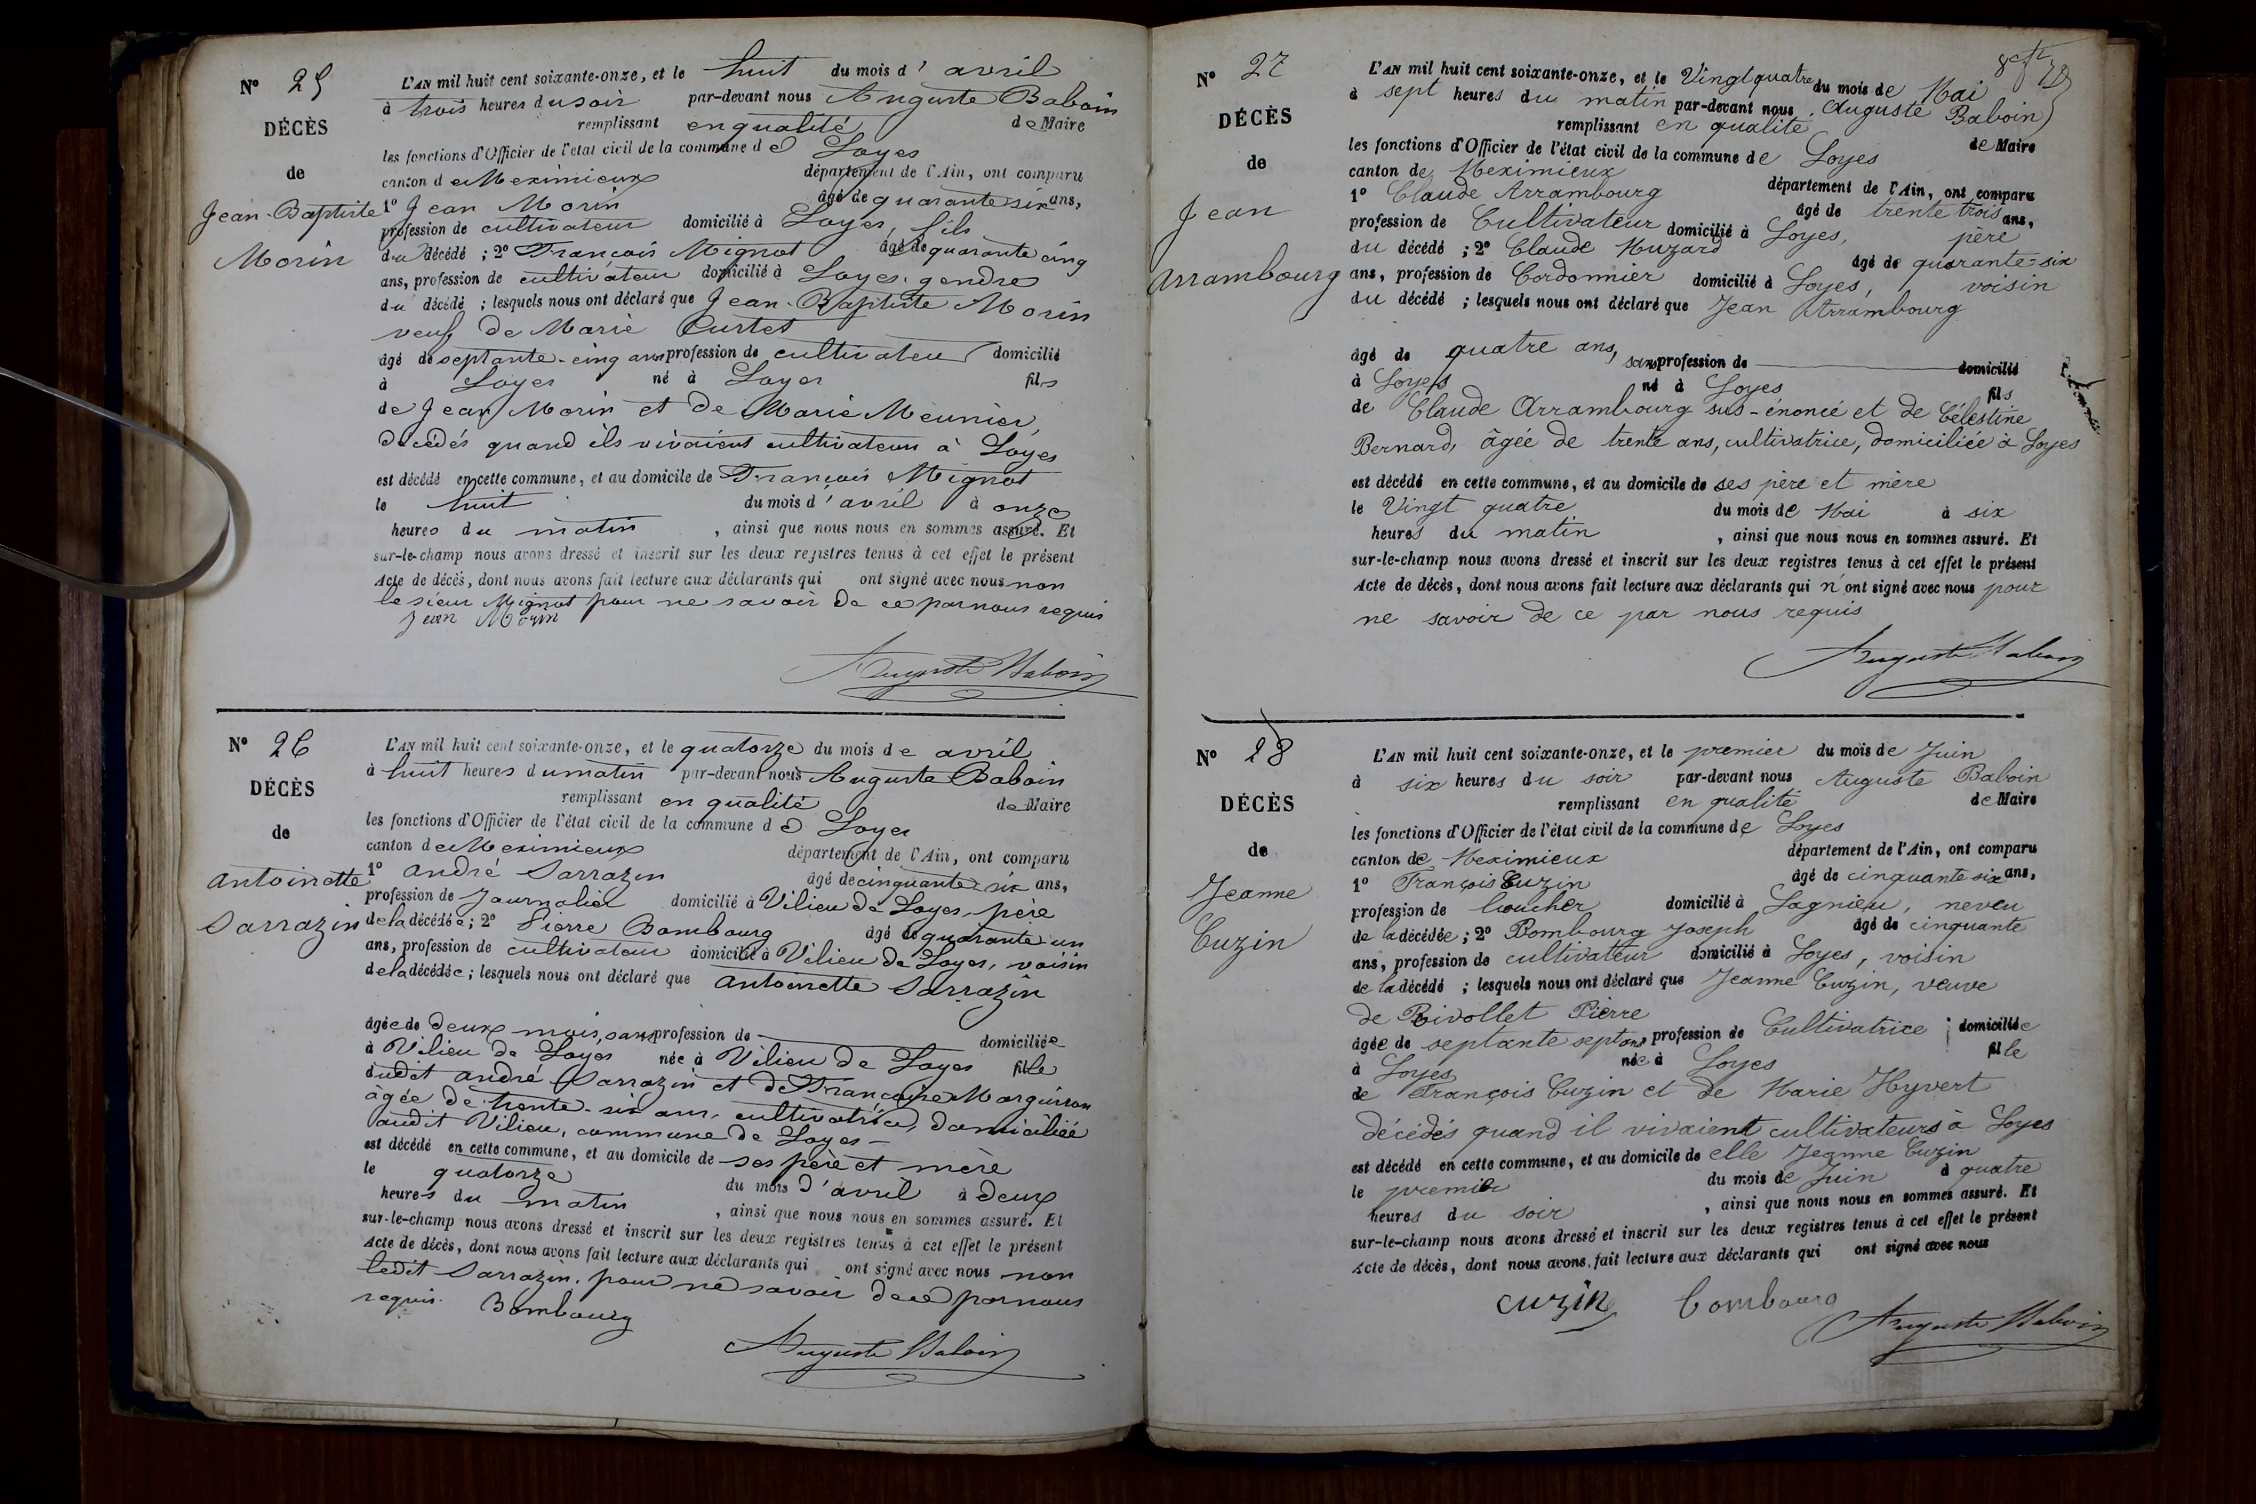 N° 25
DÉCÈS
de
Jean-Baptiste
Morin
L'AN mil huit cent soixante-onze, et le huit du mois d'avril
à trois heures du soir par-devant nous Auguste Baboin
remplissant en qualité de Maire
les fonctions d'Officier de l'état civil de la commune de Loyes
canton de Meximieux département de l'Ain, ont comparu
1° Jean Morin âgé de quarante six ans,
profession de cultivateur domicilié à Loyes, fils
du décédé ; 2° François Mignot âgé de quarante cinq
ans, profession de cultivateur domicilié à Loyes, gendre
du décédé ; lesquels nous ont déclaré que Jean-Baptiste Morin
veuf de Marie Curtet
âgé de septante-cinq ans profession de cultivateur domicilié
à Loyes né à Loyes fils
de Jean Morin et de Marie Meunier,
décédés quand ils vivaient cultivateurs à Loyes
est décédé en cette commune, et au domicile de François Mignot
le huit du mois d'avril à onze
heures du matin , ainsi que nous nous en sommes assuré. Et
sur-le-champ nous avons dressé et inscrit sur les deux registres tenus à cet effet le présent
Acte de décès, dont nous avons fait lecture aux déclarants qui ont signé avec nous non
le sieur Mignot pour ne savoir de ce par nous requis
Jean Morin
Auguste Baboin
N° 26
DÉCÈS
de
Antoinette
Sarrazin
L'AN mil huit cent soixante-onze, et le quatorze du mois de avril
à huit heures du matin par-devant nous Auguste Baboin
remplissant en qualité de Maire
les fonctions d'Officier de l'état civil de la commune de Loyes
canton de Meximieux département de l'Ain, ont comparu
1° André Sarrazin âgé de cinquante-six ans,
profession de Journalier domicilié à Vilieu de Loyes, père
de la décédée ; 2° Pierre Bombourg âgé de quarante un
ans, profession de cultivateur domicilié à Vilieu de Loyes, voisin
de la décédée ; lesquels nous ont déclaré que Antoinette Sarrazin
âgée de deux mois, sans profession de domiciliée
à Vilieu de Loyes née à Vilieu de Loyes fille
dudit André Sarrazin et de Françoise
âgée de trente-six ans, cultivatrice, domiciliée
audit Vilieu, commune de Loyes
est décédé en cette commune, et au domicile de ses père et mère
le quatorze du mois d'avril à deux
heures du matin , ainsi que nous nous en sommes assuré. Et
sur-le-champ nous avons dressé et inscrit sur les deux registres tenus à cet effet le présent
Acte de décès, dont nous avons fait lecture aux déclarants qui ont signé avec nous non
ledit Sarrazin, pour ne savoir de ce par nous
requis. Bombourg
Auguste Baboin
N° 27
DÉCÈS
de
Jean
Arrambourg
L'AN mil huit cent soixante-onze, et le Vingt quatre du mois de Mai
à sept heures du matin par-devant nous Auguste Baboin
remplissant en qualité de Maire
les fonctions d'Officier de l'état civil de la commune de Loyes
canton de Meximieux département de l'Ain, ont comparu
1° Claude Arrambourg âgé de trente trois ans,
profession de Cultivateur domicilié à Loyes, père
du décédé ; 2° Claude Muzard âgé de quarante-six
ans, profession de Cordonnier domicilié à Loyes, voisin
du décédé ; lesquels nous ont déclaré que Jean Arrambourg
âgé de quatre ans, sans profession de domicilié
à Loyes né à Loyes fils
de Claude Arrambourg sus-énoncé et de Célestine
Bernard, âgée de trente ans, cultivatrice, domiciliée à Loyes
est décédé en cette commune, et au domicile de ses père et mère
le Vingt quatre du mois de Mai à six
heures du matin , ainsi que nous nous en sommes assuré. Et
sur-le-champ nous avons dressé et inscrit sur les deux registres tenus à cet effet le présent
Acte de décès, dont nous avons fait lecture aux déclarants qui n'ont signé avec nous pour
ne savoir de ce par nous requis
Auguste Baboin
N° 28
DÉCÈS
de
Jeanne
Cuzin
L'AN mil huit cent soixante-onze, et le premier du mois de Juin
à six heures du soir par-devant nous Auguste Baboin
remplissant en qualité de Maire
les fonctions d'Officier de l'état civil de la commune de Loyes
canton de Meximieux département de l'Ain, ont comparu
1° François Cuzin âgé de cinquante six ans,
profession de boucher domicilié à Lagnieu, neveu
de la décédée ; 2° Bombourg Joseph âgé de cinquante
ans, profession de cultivateur domicilié à Loyes, voisin
de la décédé ; lesquels nous ont déclaré que Jeanne Cuzin, veuve
de Rivollet Pierre
âgée de septante sept ans profession de Cultivatrice domiciliée
à Loyes née à Loyes fille
de François Cuzin et de Marie Hyvert
décédés quand il vivaient cultivateurs à Loyes
est décédé en cette commune, et au domicile de elle Jeanne Cuzin
le premier du mois de Juin à quatre
heures du soir , ainsi que nous nous en sommes assuré. Et
sur-le-champ nous avons dressé et inscrit sur les deux registres tenus à cet effet le présent
Acte de décès, dont nous avons fait lecture aux déclarants qui ont signé avec nous
Cuzin Bombourg
Auguste Baboin